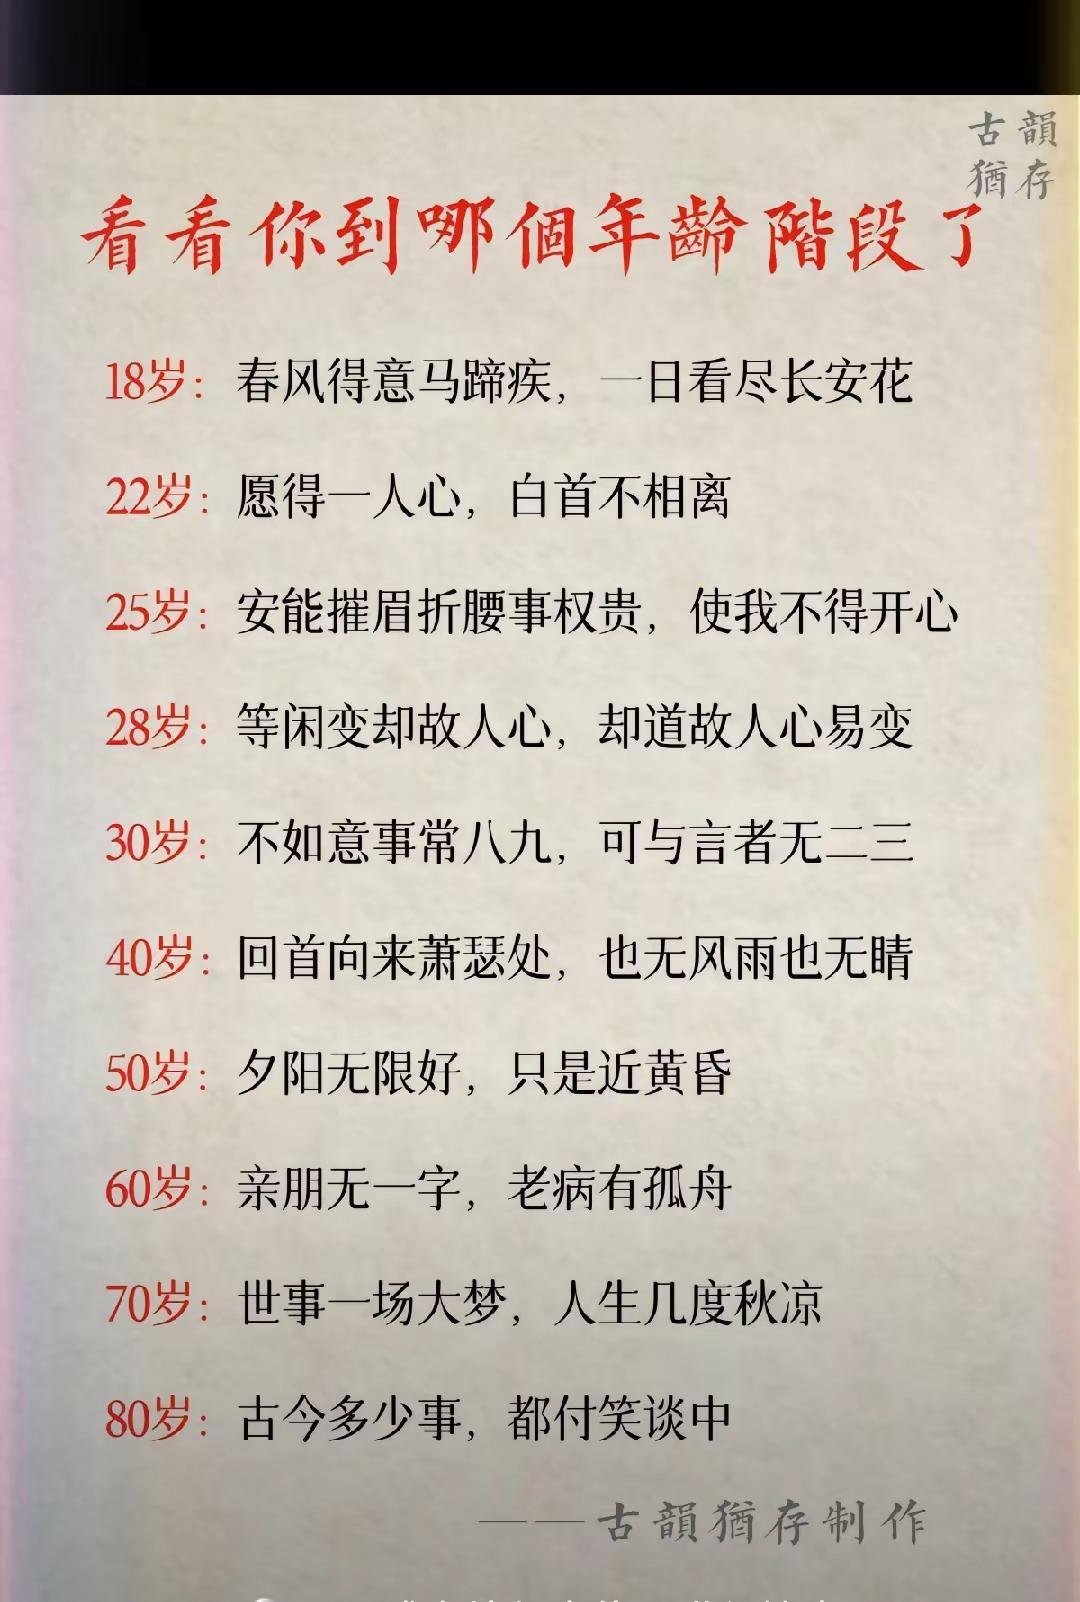 古韻
猶存
看看你到哪個年齡階段了
18岁：春风得意马蹄疾，一日看尽长安花
22岁：愿得一人心，白首不相离
25岁：安能摧眉折腰事权贵，使我不得开心
28岁：等闲变却故人心，却道故人心易变
30岁：不如意事常八九，可与言者无二三
40岁：回首向来萧瑟处，也无风雨也无晴
50岁：夕阳无限好，只是近黄昏
60岁：亲朋无一字，老病有孤舟
70岁：世事一场大梦，人生几度秋凉
80岁：古今多少事，都付笑谈中
——古韻猶存制作